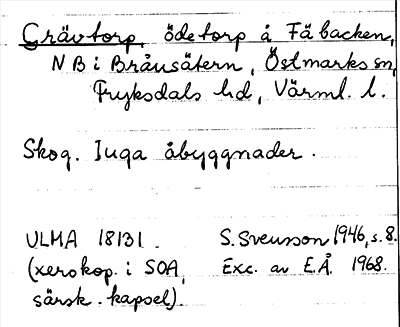 Grävtorp, ödetorp å Fäbacken,
NB i Bråtsätern, Östmarks sn,
Fryksdals hd, Värml. l.
Skog. Inga åbyggnader.
ULMA 18131. S. Svensson 1946, s. 8.
(xerokop. i SOA, Exc. av E.Å. 1968.
särsk. kapsel).